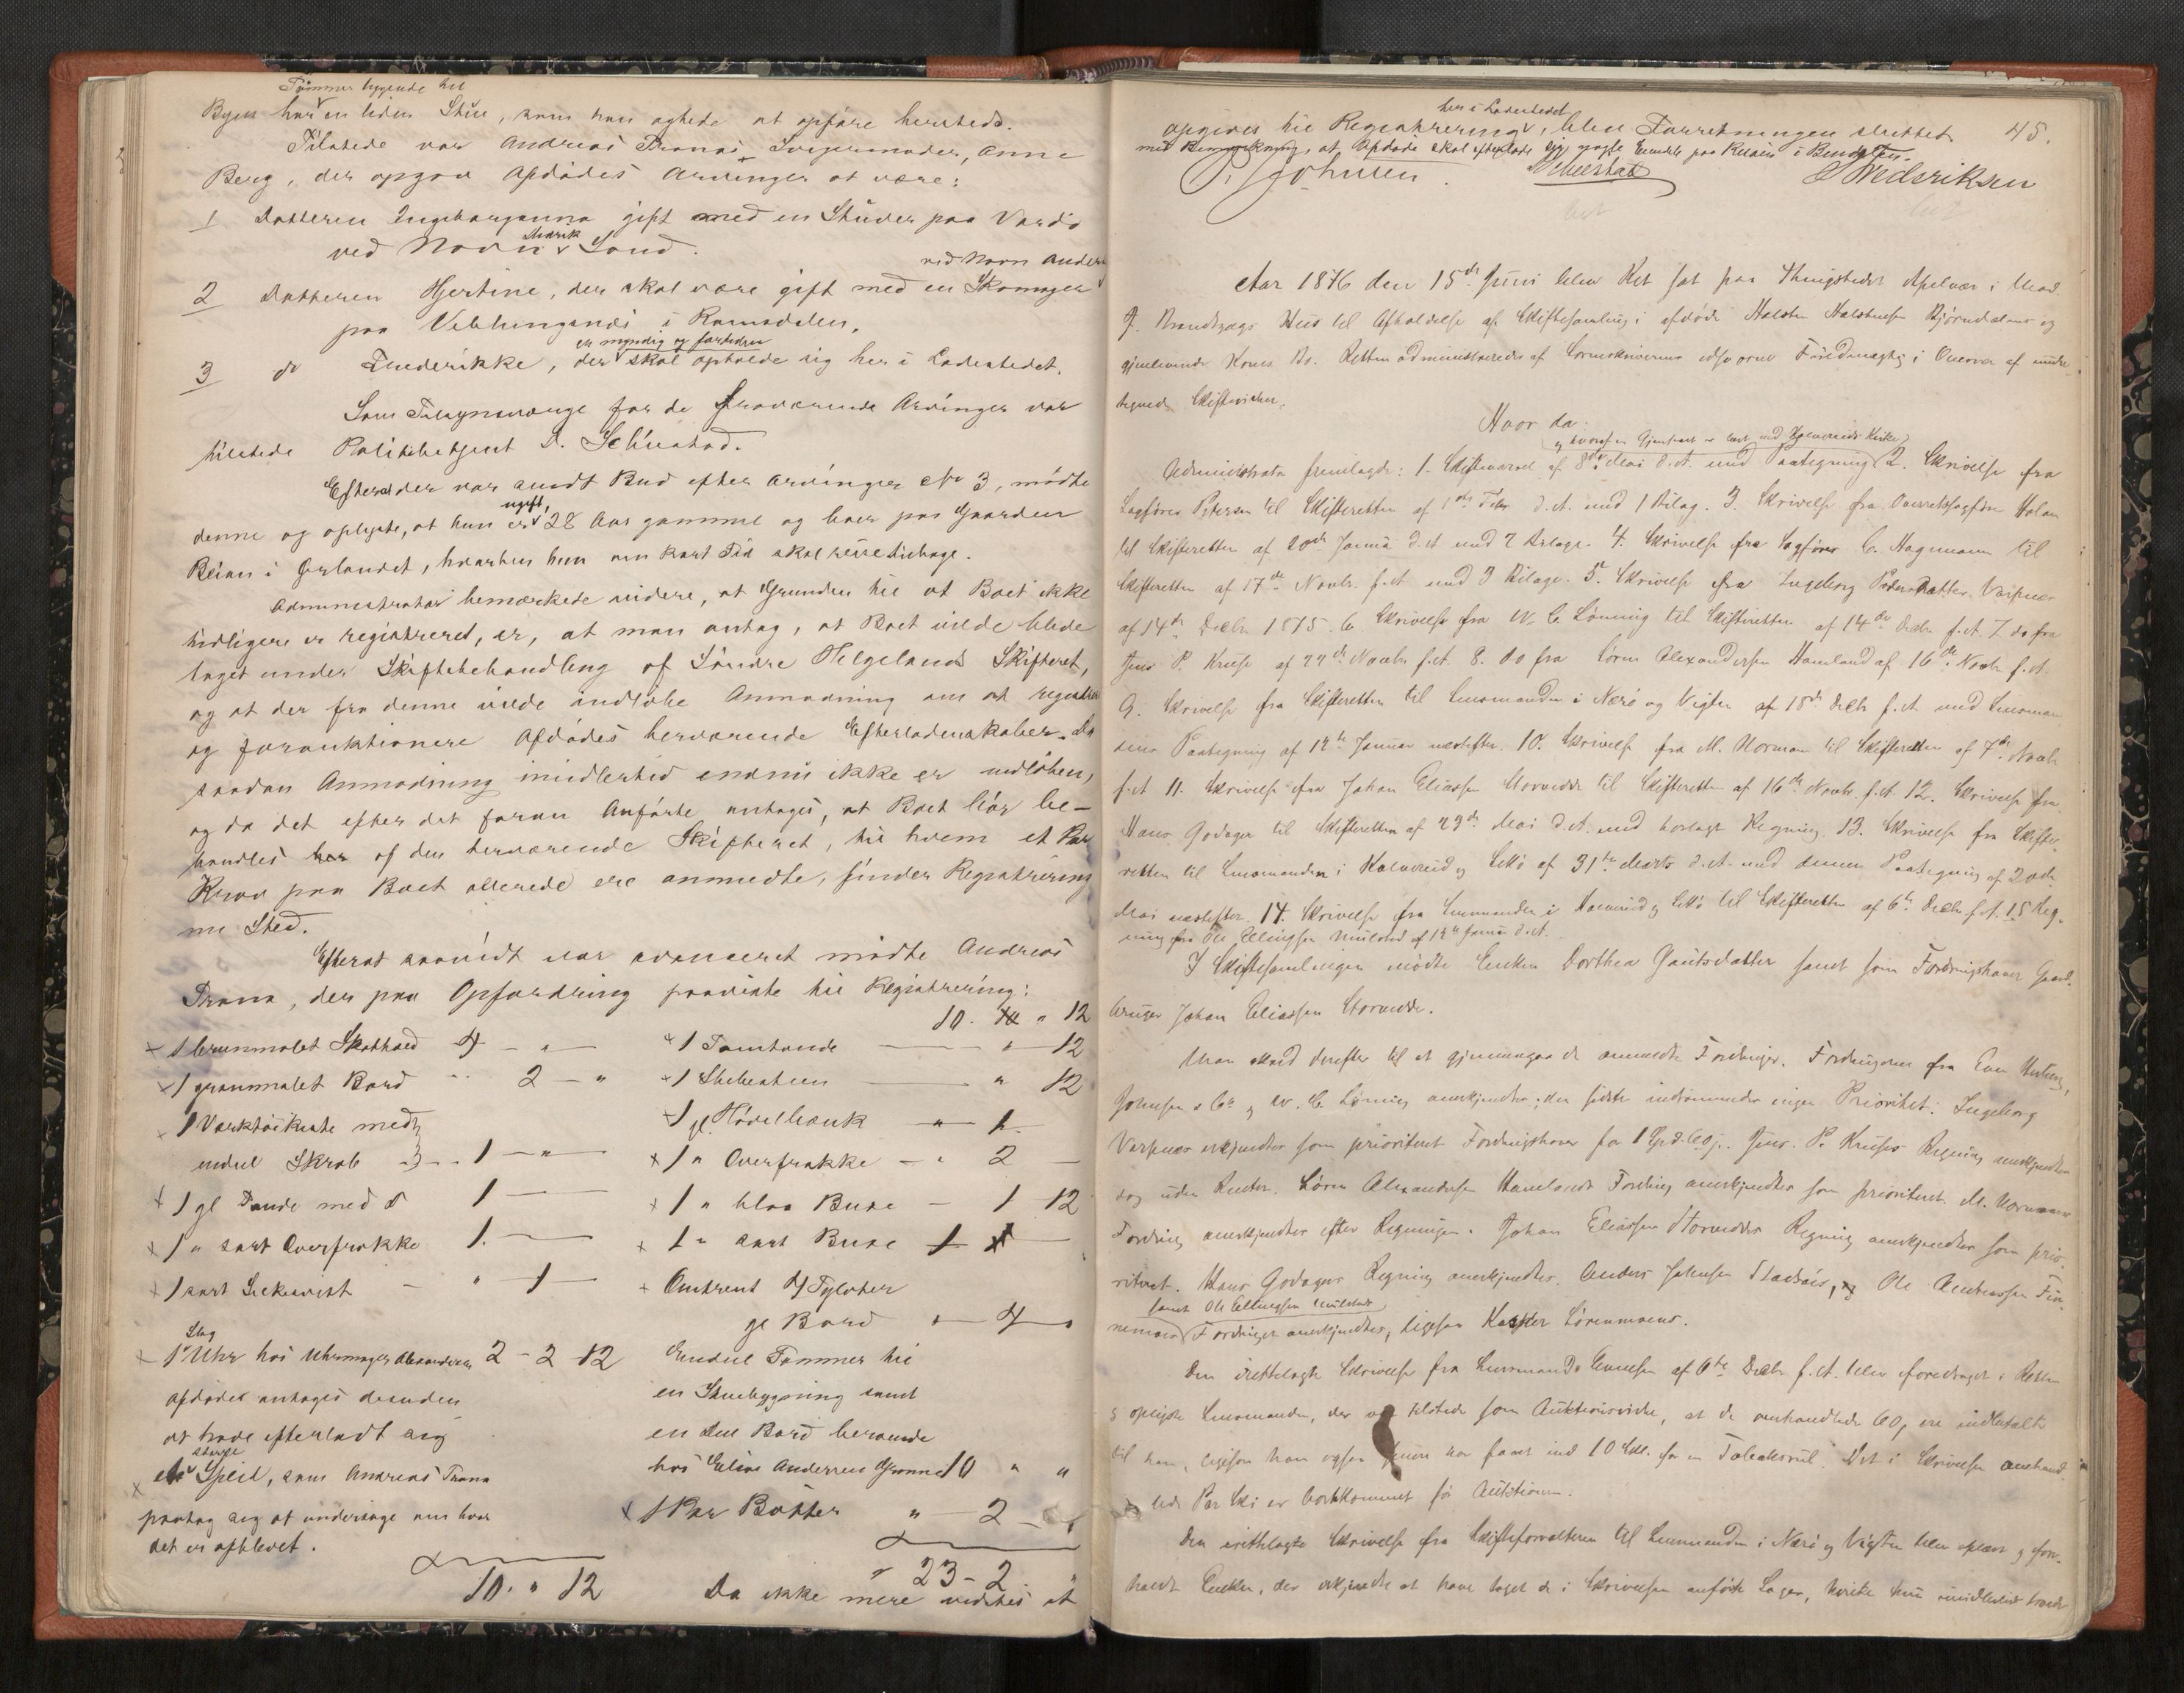 Tømmer liggende til
Byen har en liden Stue, som han agtede at opføre hersteds.
Tilstede var Andreas Tranas Svigermoder, Anne
Berg, der opgav Afdødes Arvinger at være:
1 Datteren Ingeborganna gift med en Stuver paa Vardø
ved Navn Sand.
ved Navn Anders
2 Datteren Hjertine, der skal være gift med en Skomager
paa Veblungsnæs i Romsdalen,
er myndig og
3 do Frederikke, der skal opholde sig her i Ladestedet.
Som Tilsynsværge for de fraværende Arvinger var
tilstede Politibetjent Schiestad.
Efterat der var sendt Bud efter Arvingen No 3, mødte
ugift,
denne og oplyste, at hun er 28 Aar gammel og hver paa Gaarden
Beian i Ørlandet, hvorhen hun om kort Tid skal reise tilbage.
Administrator bemærkede videre, at Grunden til at Boet ikke
tidligere er registreret, er, at man antog, at Boet vilde blive
taget under Skiftebehandling af Søndre Helgelands Skifteret,
og at der fra denne vilde indløbe Anmodning om at registrere
og forauktionere Afdødes herværende Efterladenskaber. Da
saadan Anmodning imidlertid endnu ikke er indløben,
og da det efter det foran Anførte antages, at Boet bør be-
handles af den herværende Skifteret, til hvem et Par
Krav paa Boet allerede ere anmeldte, finder Registrering
nu Sted.
Efterat saavidt var avanceret mødte Andreas
Trana, der paa Opfordring paaviste til Registrering:
10. " 12
1 brunmalet Skathold 4 - " -
1 Tomtønde - " 12
1 grønmalet Bord 2 - "
1 Slibesteen - " 12
1 Værktøikiste med
1 gl Høvelbænk - " 1.
endel Skrab 1 - " -
1 " Overfrakke - " 2 -
1 gl Tønde med d 1 -
1 " blaa Buxe - 1 12
1 " sort Overfrakke 1. -
1 " sort Buxe 1 -
1 sort - " 1 -
Omtrent 4 Tylvter
gl Bord " 4 "
1 Uhr hos Uhrmager Alexandersen 2 - 2 12
Endel Tømmer til
afdødes antages desuden
en Stuebygning samt
at have efterladt sig
en Deel Bord beroende
større
et Speil, som Andreas Trana
hos Elias Andersen 10 " "
paatog sig at undersøge om hvor
1 Par Bøtter " 2 -
det er afblevet.
10. " 12
23 - 2 "
Da ikke mere vidstes at
her i Ladestedet
opgives til Registrering, blev Forretningen sluttet 45.
med Bemærkning, at Afdøde skal efterlade sig nogle paa i Bindalen.
P. Johnsen. Schiestad Frederiksen
Aar 1876 den 15de Juni blev Ret sat paa Thingstedet Apelvær i Mad.
J. Brandtzægs Hus til Afholdelse af Skiftesamling i afdøde Halsten Halstensen Bjørndalens og
gjenlevende Kones Bo. Retten administreredes af Sorenskriverens edsvorne Fuldmægtig i Overvær af under-
tegnede Skiftevidner.
Hvor da:
og hvoraf en Gjenpart er læst ved Kolvereids Kirke
Administrator fremlagde: 1. Skiftevarsel af 8de Mai d.A. med Paategning 2. Skrivelse fra
Sagfører Petersen til Skifteretten af 1ste Febr. d.A. med 1 Bilag. 3. Skrivelse fra Overretssagfører Holan
til Skifteretten af 20de Januar d.A. med 2 Bilage. 4. Skrivelse fra Sagfører C. Hagemann til
Skifteretten af 17de Novbr. f.A. med 3 Bilage. 5. Skrivelse fra Ingeborg Pedersdatter Varpnes
af 14de Decbr. 1875. 6. Skrivelse fra W. C. Lønning til Skifteretten af 14de Decbr. f.A. 7. do fra
Jens P. Kruse af 22de Novbr. f.A. 8. do fra Søren Alexandersen Hamland af 16de Novbr. f.A.
9. Skrivelse fra Skifteretten til Lensmanden i Nærø og Vigten af 18de Decbr. f.A. med Lensman-
dens Paategning af 12te Januar næstefter. 10. Skrivelse fra M. Norman til Skifteretten af 7de Novbr.
f.A. 11. Skrivelse fra Johan Eliassen Storvedde til Skifteretten af 16de Novbr. f.A. 12. Skrivelse fra
Hans Godager til Skifteretten af 29de Mai d.A. med vedlagt Regning. 13. Skrivelse fra Skifte-
retten til Lensmanden i Kolvereid og Lekø af 31te Marts d.A. med dennes Paategning af 20de
Mai næstefter. 14. Skrivelse fra Lensmanden i Kolvereid og Lekø til Skifteretten af 6te Decbr. f.A. 15 Reg-
ning fra Ole Ellingsen Mulstad af 12te Januar d.A.
I Skiftesamlingen mødte Enken Dorthea Gautsdatter samt som Fordringshaver Gaard-
bruger Johan Eliassen Storvedde.
Man skred derefter til at gjennemgaa de anmeldte Fordringer. Fordringerne fra Even
Johnsen & Co og W. C. Lønning anerkjendtes; den sidste indrømmedes ingen Prioritet. Ingeborg
Varpnes erkjendtes som prioriteret Fordringshaver for 1 Spd. 60 s. Jens P. Kruses Regning anerkjendtes
dog uden Renter. Søren Alexandersen Hamlands Fordring anerkjendtes som prioriteret. M. Normans
Fordring anerkjendtes efter Regningen. Johan Eliassen Storveddes Regning anerkjendtes som prio-
riteret. Hans Godagers Regning anerkjendtes. Anders Johnsen, Ole Andreassen Fin-
samt Ole Ellingsen Mulstads
nemoes Fordringer anerkjendtes, ligesaa Kasper Sørenmoens.
Den irettelagte Skrivelse fra Lensmand Evensen af 6te Decbr. f.A. blev foredraget i Retten
og oplyste Lensmanden, der var tilstede som Auktionsvidne, at de omhandlede 60 s ere indbetalt
til ham, ligesom han ogsaa har faaet ind 10 Sk. for en Tobaksrul. Det i Skrivelsen omhand-
lede Par Ski er bortkommet før Auktionen.
Den irettelagte Skrivelse fra Skifteforvalteren til Lensmanden i Nærø og Vigten blev oplæst og fore-
holdt Enken, der erkjendte at have taget de i Skrivelsen anførte Sager, hvilke hun imidlertid troede